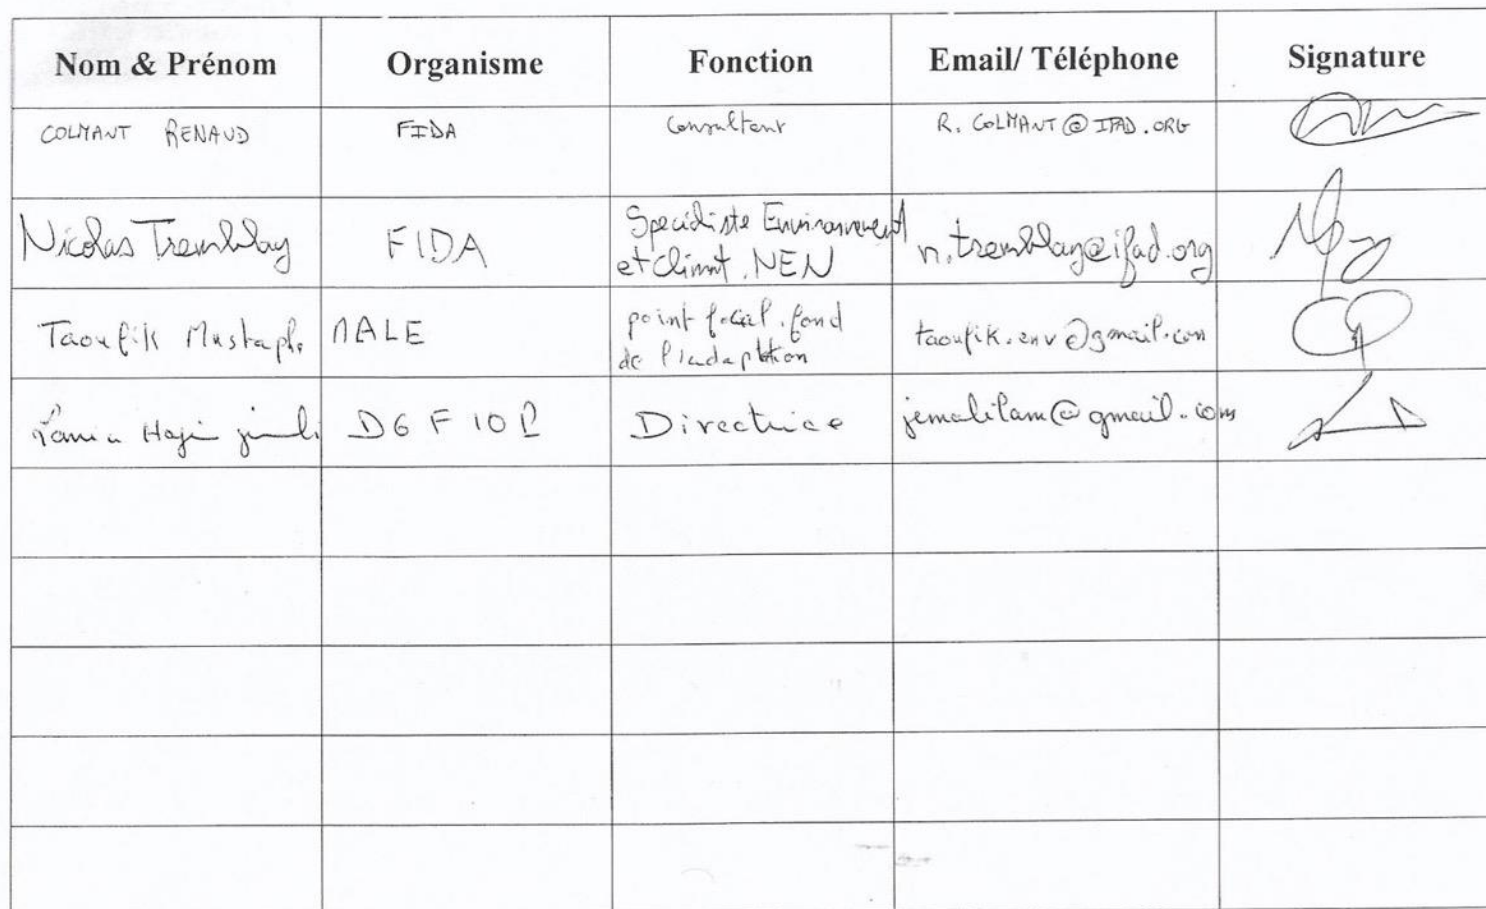 Nom & Prénom Organisme Fonction Email/ Téléphone Signature
COLMANT RENAUD FIDA Consultant R.COLMANT@IFAD.ORG
Nicolas Tremblay FIDA Spécialiste Environnement n.tremblay@ifad.org
et Climat. NEN
Taoufik Mustapha MALE point focal. fond taoufik.env@gmail.com
de l'adaptation
Hajji DGFIOP Directrice jemalilam@gmail.com